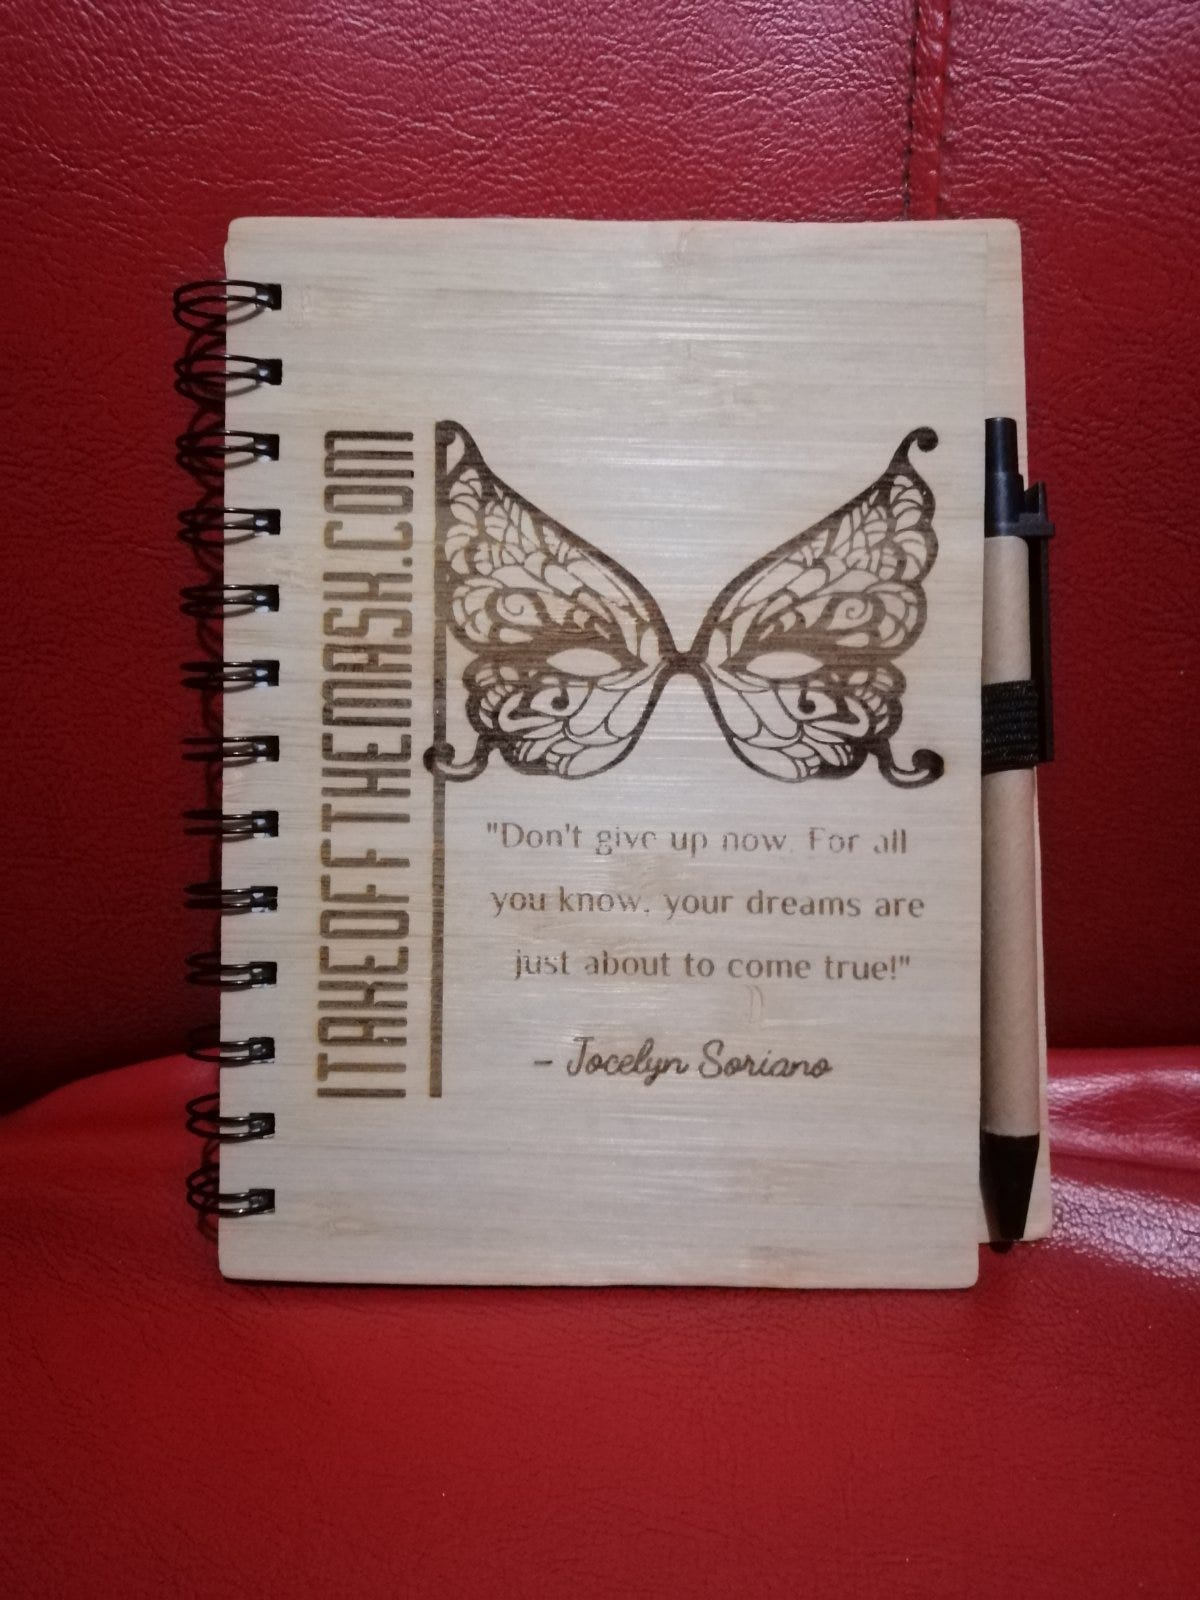 ITAKEOFFTHEMASK.COM
"Don't give up now. For all
you know, your dreams are
just about to come true!"
- Jocelyn Soriano